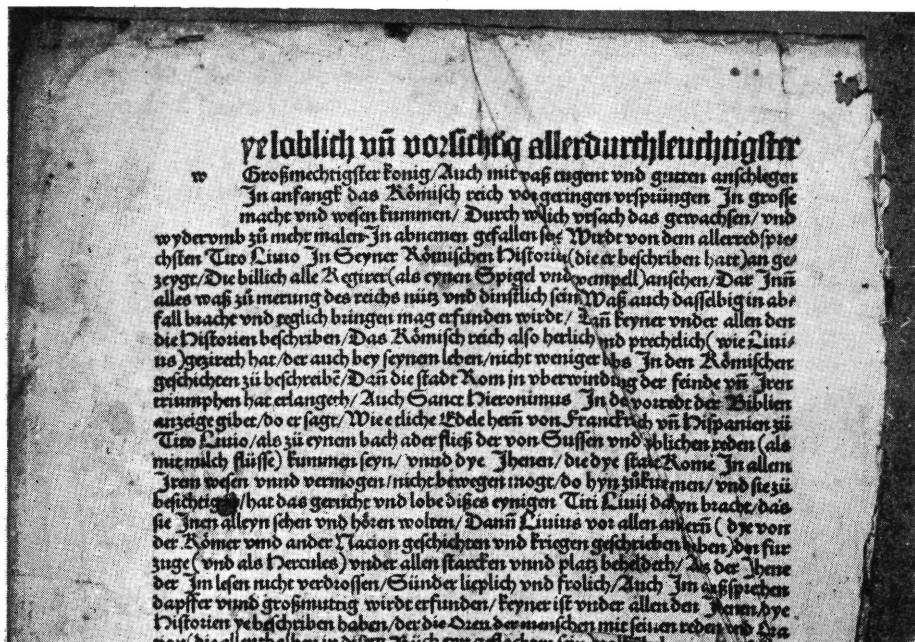 yeloblich vñ vorsichtig allerdurchleuchtigster
w Großmechtigster konig/Auch mit vaß tugent vnd gutten anschlegen
In anfangk das Römisch reich vor geringen vrsprüngen In grosse
macht vnd wesen kummen/ Durch vrsach das gewachsen/ vnd
wydervmb zů mehr malen In abnemen gefallen Wirdt von dem allerredspre-
chsten Tito Liuio In Seyner Römischen Historien (die er beschriben hatt) an ge-
zeygt/ Die billich alle Regirer (als eynen Spigel vnd) ansehen/ Dar Inñ
alles waß zů merung des reichs nütz vnd dinstlich sein Waß auch dasselbig in ab-
fall bracht vnd teglich bringen mag erfunden wirdt/ keyner vnder allen den
die Historien beschriben/ Das Römisch reich also herlich vnd prechtlich (wie Liui-
us) gezireth hat/ der auch bey seynem leben/ nicht weniger In den Römischen
geschichten zů beschreibẽ/ Dañ die stadt Rom jn vberwindung der feinde vñ Iren
triumphen hat erlangeth/ Auch Sanct Hieronimus In vorredt der Biblien
anzeige gibet/ do er sagt/ Wie etliche Edele herñ von Franckrich vñ Hispanien zů
Tito Liuio/ als zů eynem bach ader fließ der von Sussen vnd liblichen reden (als
mit milch flüsse) kummen seyn/ vnnd dye Jhenen/ die dye statt Rome In allem
Irem wesen vnnd vermogen/ nicht bewegen mogt/ do hyn zůkummen/ vnd sie zů
besichtigen/ hat das gerucht vnd lobe dißes eynigen Titi Liuij dahyn bracht/ das
sie Inen alleyn sehen vnd hören wolten/ Danñ Liuius vor allen anderñ (dye von
der Römer vnnd ander Nacion geschichten vnd kriegen geschrieben haben) den fur
zuge (vnd als Hercules) vnder allen starcken vnnd platz beheldeth/ Als der Jhene
der Im lesen nicht verdrossen/ Sünder lieplich vnd frolich/ Auch Im außsprechen
dapffer vnnd großmuttig wirdt erfunden/ keyner ist vnder allen den Jhenen/ dye
Historien ye beschriben haben/ der die Oren der menschen mit seinen reden vnd